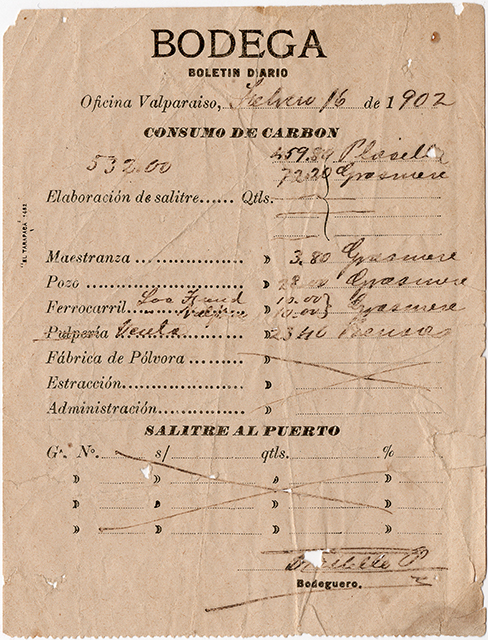 BODEGA
BOLETIN DIARIO
Oficina Valparaiso, Febrero 16 de 1902
CONSUMO DE CARBON
459.80 Placilla
532.00
72.20 Grasmere
Elaboración de salitre...... Qtls.
Maestranza .................. » 3.80 Grasmere
Pozo ........................... » Grasmere
Ferrocarril. 10.00 Grasmere
» 10.00
Pulpería » 23.40
Fábrica de Pólvora............ »
Estracción..................... »
Administración............... »
SALITRE AL PUERTO
Gs. No. s/ qtls. %
» » » »
» » » »
» » » »
Bodeguero.
"EL TARAPACÁ"